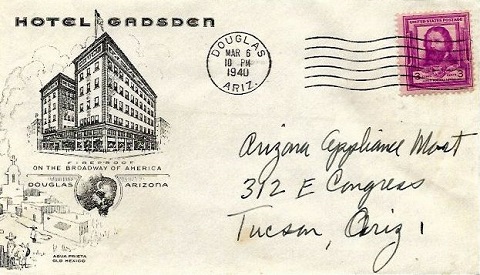 HOTEL GADSDEN
DOUGLAS
MAR 6
10 PM
1940
ARIZ.
UNITED STATES POSTAGE
3 3
FIREPROOF
ON THE BROADWAY OF AMERICA
DOUGLAS ARIZONA
AGUA PRIETA
OLD MEXICO
Arizona Appliance Mart
312 E Congress
Tucson, Ariz